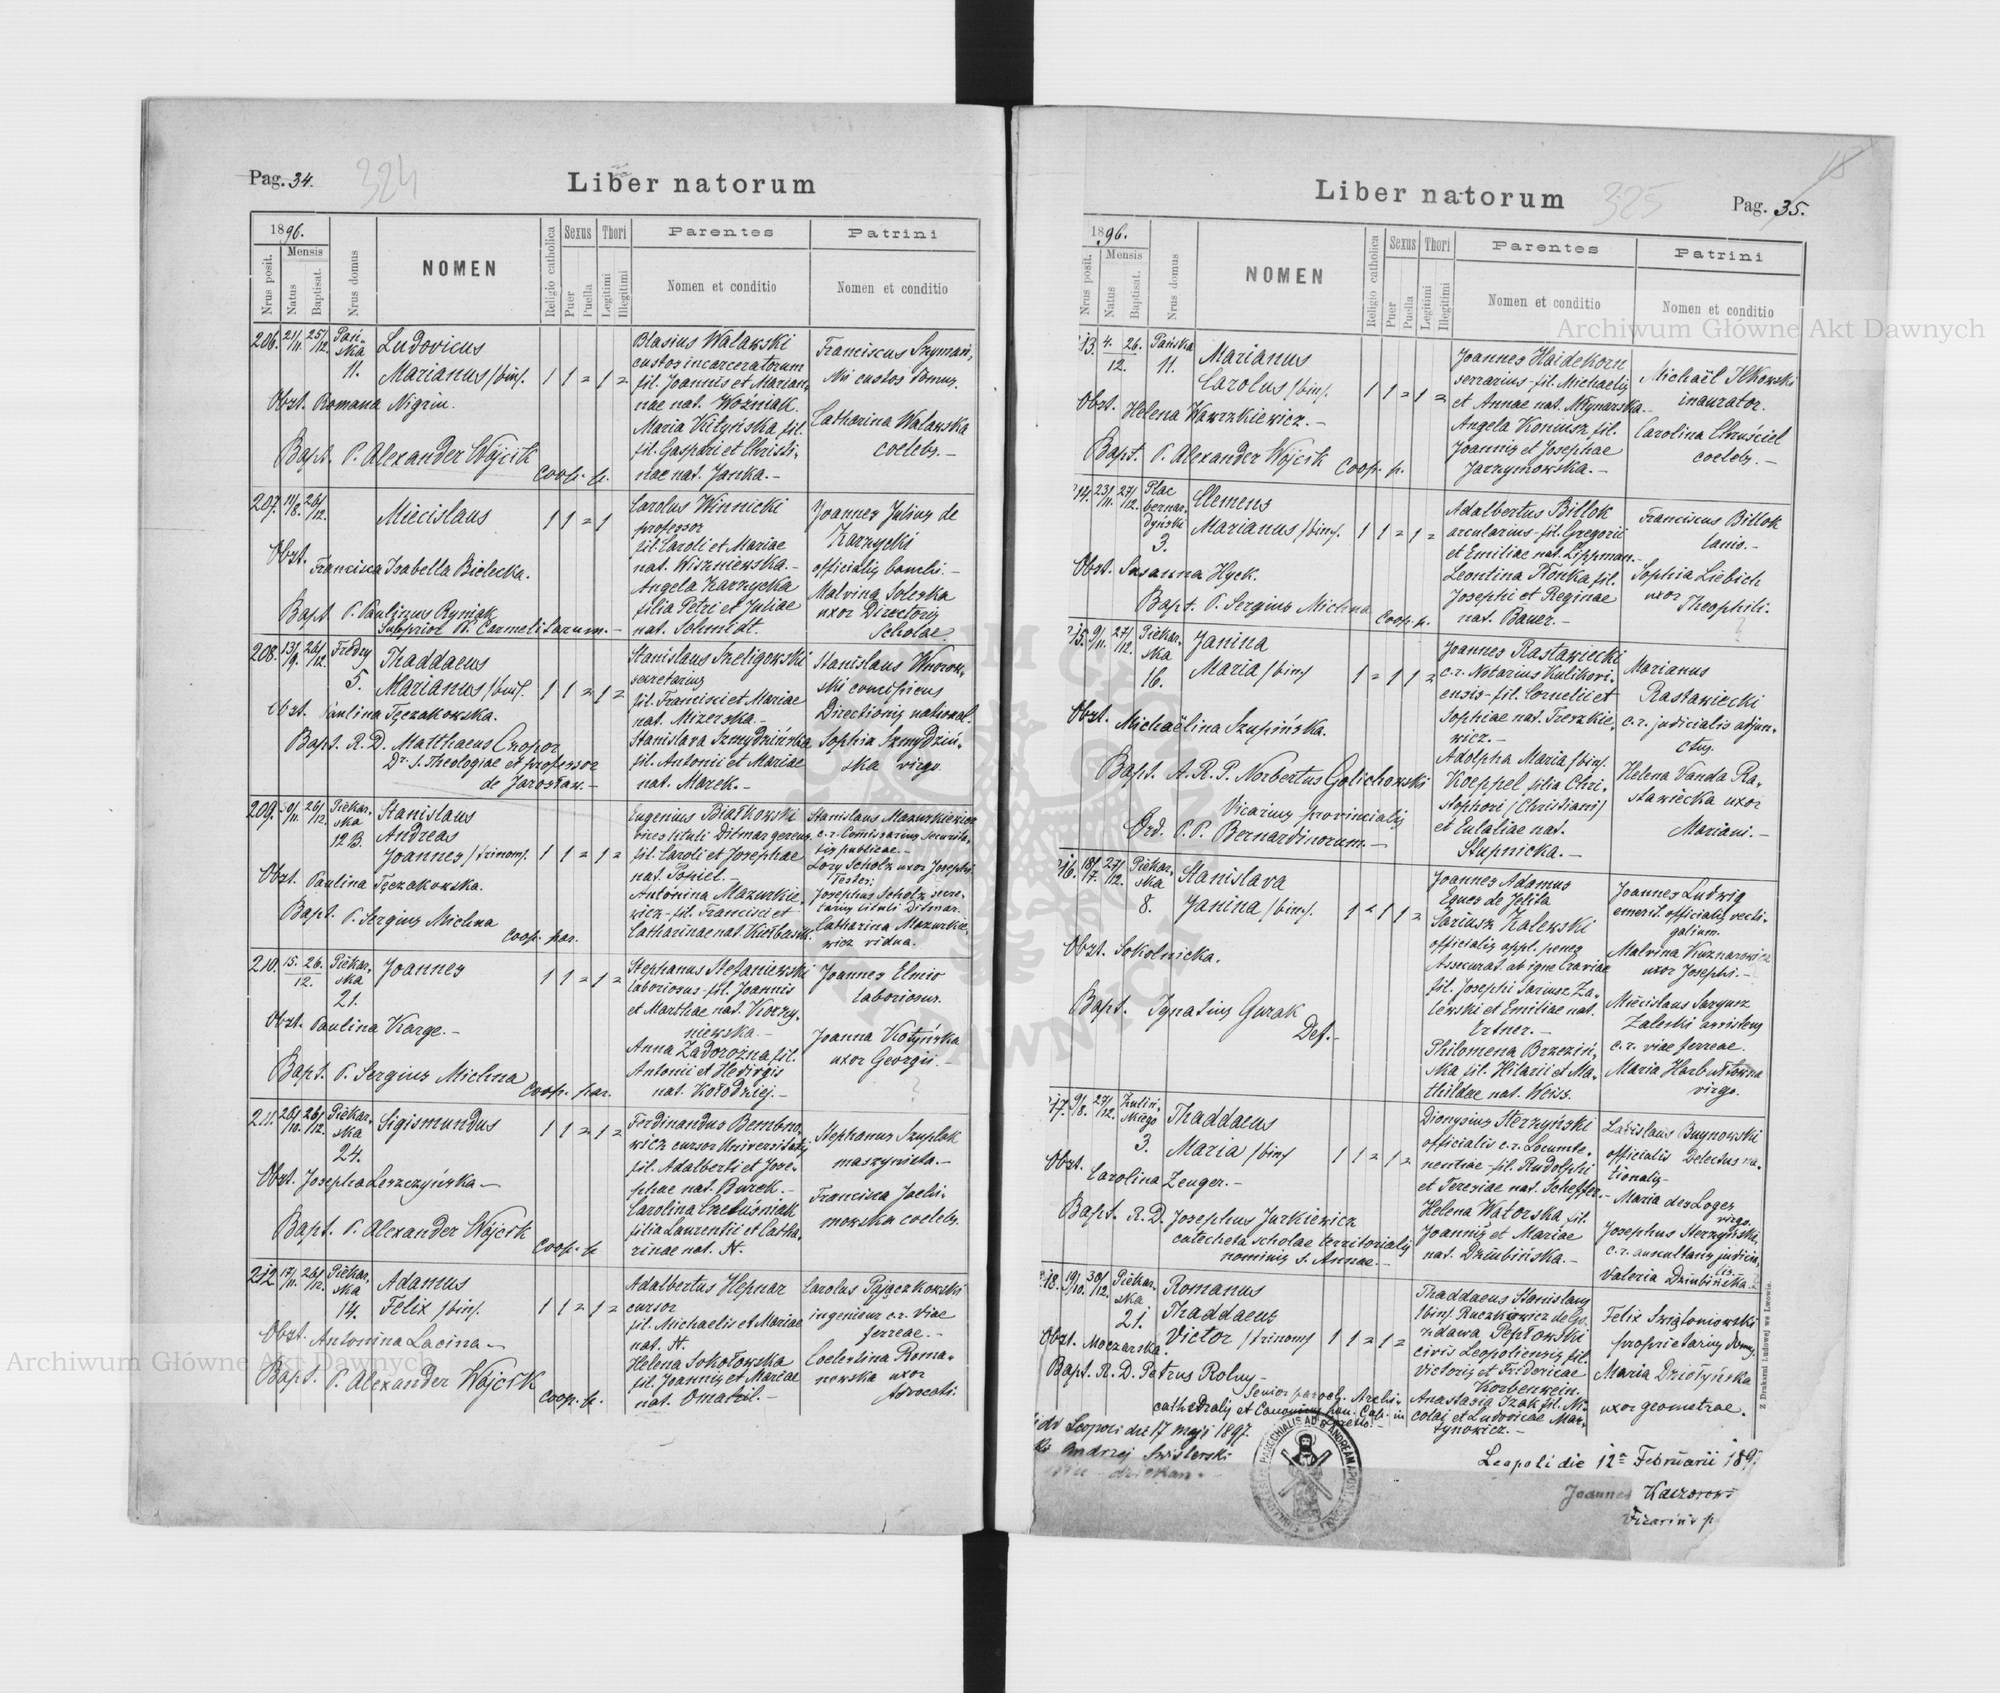 Pag. 34.
324
Liber natorum
1896.
Nrus posit.
Mensis
Natus
Baptisat.
Nrus domus
NOMEN
Religio catholica
Sexus
Puer
Puella
Thori
Legitimi
Illegitimi
Parentes
Nomen et conditio
Patrini
Nomen et conditio
206. 21/11. 25/12. Pań-
ska
11.
Ludovicus
Marianus /bin/. 1 1 = 1 =
Obst. Romana Nigrin.
Bapt. P. Alexander Wójcik
Coop. p.
Blasius Walawski
custos incarceratorum
fil. Joannis et Marian-
nae nat. Woźniak.
fil. Gaspari et Christi-
nae nat. Janka.-
Franciscus Szymań-
ski custos domus.
Catharina Walawska
coelebs.-
207. 11/8. 26/12.
Miecislaus 1 1 = 1
Obst. Francisca Isabella Bielecka.
Bapt. P. Paulinus Rymiak
Subprior PP. Carmelitarum.-
Carolus Winnicki
professor
fil. Caroli et Mariae
nat. Wiszniewska.-
Angela Zarzycka
filia Petri et Juliae
nat. Schmidt.
Joannes Julius de
Zarzycki
officialis
Malvina Soleska
uxor Directoris
Scholae.
208. 13/9. 26/12. Fredry
5.
Thaddaeus
Marianus /bin/. 1 1 = 1 =
Obst. Paulina Tęczakowska.
Bapt. R. D. Matthaeus Czopor
Dr. S. Theologiae et professor
de Jarosław.-
Stanislaus Szeligowski
secretarius
fil. Francisci et Mariae
nat. Mizerska.-
Stanislava Szmydzińska
fil. Antonii et Mariae
nat. Marek.-
Stanislaus Wnorow-
ski
Directionis national.
Sophia Szmydziń-
ska virgo.
209. 26/12. Piekar-
ska
12 B.
Stanislaus
Andreas
Joannes /trinom/. 1 1 = 1 =
Obst. Paulina Tęczakowska.
Bapt. P. Sergius Michna
Coop. par.
Eugenius Białkowski
vices tituli Ditmar gerens
fil. Caroli et Josephae
nat. Popiel.-
Antonina Mazurkie-
wicz-fil. Francisci et
Catharinae nat.
Stanislaus Mazurkiewicz
c.r. Comissarius securita-
tis publicae.-
Lory Scholz uxor Josephi
Testes:
Josephus Scholz secre-
tarius tituli Ditmar.
Catharina Mazurkie-
wicz vidua.
210. 15. 26.
12.
Piekar-
ska
21.
Joannes 1 1 = 1 =
Obst. Paulina Karge.-
Bapt. P. Sergius Michna
Coop. par.
Stephanus Stefaniewski
laboriosus-fil. Joannis
et Marthae nat. Korzy-
niewska.-
Anna Zadorożna fil.
Antonii et Hedvigis
nat. Kołodziej.-
Joannes Elmio
laboriosus.
Joanna Kotyńska
uxor Georgii.-
211. 26/10. 26/12. Piekar-
ska
24.
Sigismundus 1 1 = 1 =
Obst. Josepha Leszczyńska-
Bapt. P. Alexander Wójcik
Coop. p.
Ferdinandus Bembno-
wicz cursor Universitatis
fil. Adalberti et Jose-
phae nat. Burek.-
Carolina
filia Laurentii et Catha-
rinae nat. N.
Stephanus Szuplak
maszynista.-
Francisca Jachi-
mowska coelebs.
212. 17/11. 26/12. Piekar-
ska
14.
Adamus
Felix /bin/. 1 1 = 1 =
Obst. Antonina Lacina-
Bapt. P. Alexander Wójcik
Coop. p.
Adalbertus Hepnar
cursor
fil. Michaelis et Mariae
nat. N.
Helena Sokołowska
fil. Joannis et Mariae
nat.
Carolus Pajączkowski
ingenieur c.r. Viae
ferreae.-
Coelestina Roma-
nowska uxor
Advocati.
Liber natorum
325
Pag. 35.
1896.
Nrus posit.
Mensis
Natus
Baptisat.
Nrus domus
NOMEN
Religio catholica
Sexus
Puer
Puella
Thori
Legitimi
Illegitimi
Parentes
Nomen et conditio
Patrini
Nomen et conditio
13. 4. 26.
12.
Pańska
11.
Marianus
Carolus /bin/. 1 1 = 1 =
Obst. Helena Wawrzkiewicz.-
Bapt. P. Alexander Wójcik Coop. p.
Joannes Haidekorn
serrarius-fil. Michaelis
et Annae nat. Młynarska.-
Angela Koniusz fil.
Joannis et Josephae
Jarzymowska.-
Michaël Ilkowski
inaurator.
Carolina Chuściel
coelebs.-
14. 23/11. 27/12. Plac
bernar-
dyński
3.
Clemens
Marianus /bin/. 1 1 = 1 =
Obst. Susanna Hyck.
Bapt. P. Sergius Michna Coop. p.
Adalbertus Billok
arcularius-fil. Gregorii
et Emiliae nat. Lippman.-
Leontina Płonka fil.
Josephi et Reginae
nat. Bauer.-
Franciscus Billok
lanio.-
Sophia Liebich
uxor
Theophili.
15. 9/11. 27/12. Piekar-
ska
16.
Janina
Maria /bin/ 1 = 1 1 =
Obst. Michaëlina Szupińska.
Bapt. A. R. P. Norbertus Golichowski
Vicarius provincialis
Ord. P.P. Bernardinorum.-
Joannes Rastawiecki
c.r. Notarius Kulikovi-
ensis-fil. Cornelii et
Sophiae nat. Treszkie-
wicz.-
Adolpha Maria /bin/.
Koeppel filia Chri-
stophori /Christiani/
et Eulaliae nat.
Stupnicka.-
Marianus
Rastawiecki
c.r. judicialis adjun-
ctus.
Helena Vanda Ra-
stawiecka uxor
Mariani.-
16. 18/7. 27/12. Piekar-
ska
8.
Stanislava
Janina /bin/. 1 = 1 1 =
Obst. Sokolnicka.
Bapt. Ignatius Gurak
Def.-
Joannes Adamus
Eques de Jelita
Sariusz Zalewski
officialis appl. penes
Assecurat. ab igne Craviae
fil. Josephi Sariusz Za-
lewski et Emiliae nat.
Ertner.-
Philomena Brzeziń-
ska fil. Hilarii et Ma-
thildae nat. Weiss.
Joannes Ludwig
emerit. officialis vecti-
galium.
Malvina Kuznarowicz
uxor Josephi.-
Miecislaus Saryusz
Zaleski assistens
c.r. viae ferreae.
Maria Harbutówna
virgo.
17. 9/8. 27/12. Kuliń-
skiego
3.
Thaddaeus
Maria /bin/ 1 1 = 1 =
Obst.
Carolina Zenger.-
Bapt. R. D. Josephus Jurkiewicz
catecheta scholae territorialis
nominis S. Annae.-
Dionysius Sterzyński
officialis c.r. Locumte-
nentiae-fil. Rudolphi
et Teresiae nat. Scheffer.-
Helena Watorska fil.
Joannis et Mariae
nat. Dziubińska.-
Ladislaus Buynowski
officialis Delectus na-
tionalis-
Maria des Loges
virgo.
Josephus Sterzyński
c.r. auscultans judicia-
lis.-
Valeria Dziubińska.
18. 19/10. 30/12. Piekar-
ska
21.
Romanus
Thaddaeus
Victor /trinom/ 1 1 = 1 =
Obst. Moczarska.
Bapt. R. D. Petrus Rolny-
Senior paroch. Archi-
cathedralis et Canonicus hon. Cap. in
Loretto.-
Thaddaeus Stanislaus
/bin/. Ruczkiewicz de Go-
zdawa Pepłowski
civis Leopoliensis fil.
Victoris et Fridericae
Korbenwein.
Anastasia Izak fil. Ni-
colai et Ludovicae Mar-
tynowicz.-
Felix Swiątoniowski
proprietarius domus.
Maria Dziotyńska
uxor geometrae.
Z Drukarni Ludowej we Lwowie.
Leopoli die 17 maji 1897.
Andrzej Świsterski
dziekan
Leopoli die 12ª Februarii 189
Joannes
Vicarius p
Archiwum Główne Akt Dawnych
Archiwum Główne Akt Dawnych